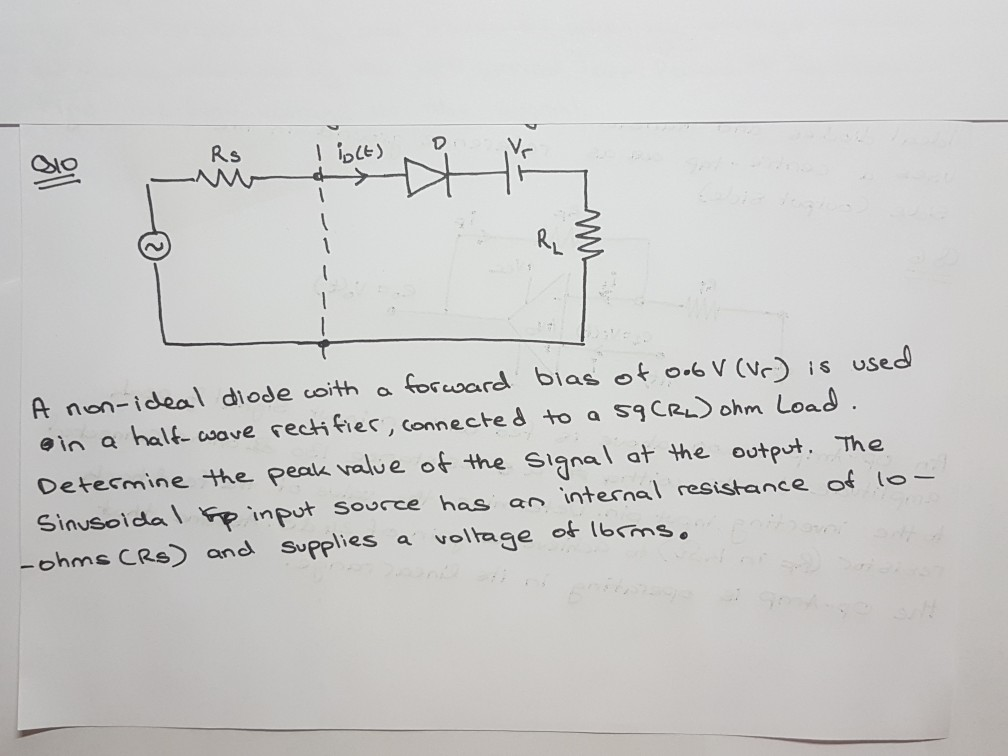 Q10
Rs
iD(t)
D
Vr
RL
A non-ideal diode with a forward bias of 0.6 V (Vr) is used
in a half-wave rectifier, connected to a 59 (RL) ohm Load.
Determine the peak value of the signal at the output. The
Sinusoidal input source has an internal resistance of 10-
-ohms (Rs) and supplies a voltage of 16rms.